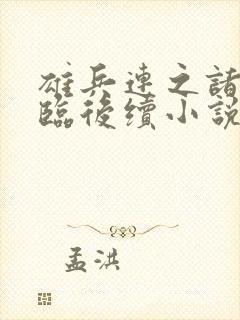 雄兵連之諸
臨後續小說
孟洪